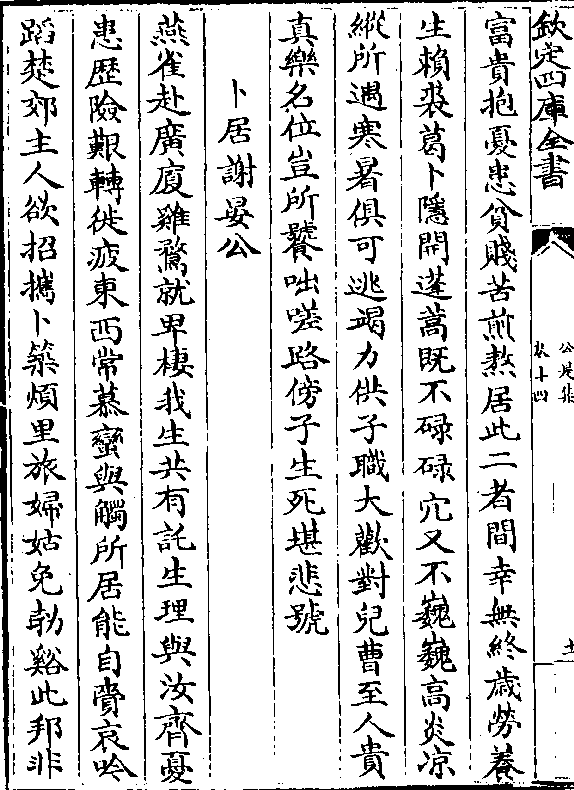 欽定四庫全書
公是集
卷十四
十
富貴抱憂患貧賤苦煎熬居此二者間幸無終歲勞養
生賴裘葛卜隱開蓬蒿既不碌碌穴又不巍巍高炎凉
縱所遇寒暑俱可逃竭力供子職大歡對兒曹至人貴
真樂名位豈所饕咄嗟路傍子生死堪悲號
卜居謝晏公
燕雀赴廣廈雞鶩就卑棲我生共有託生理與汝齊憂
患歴險艱轉徙疲東西常慕蠻與觸所居能自賫哀吟
蹈楚郊主人欲招攜卜築煩里旅婦姑免勃谿此邦非